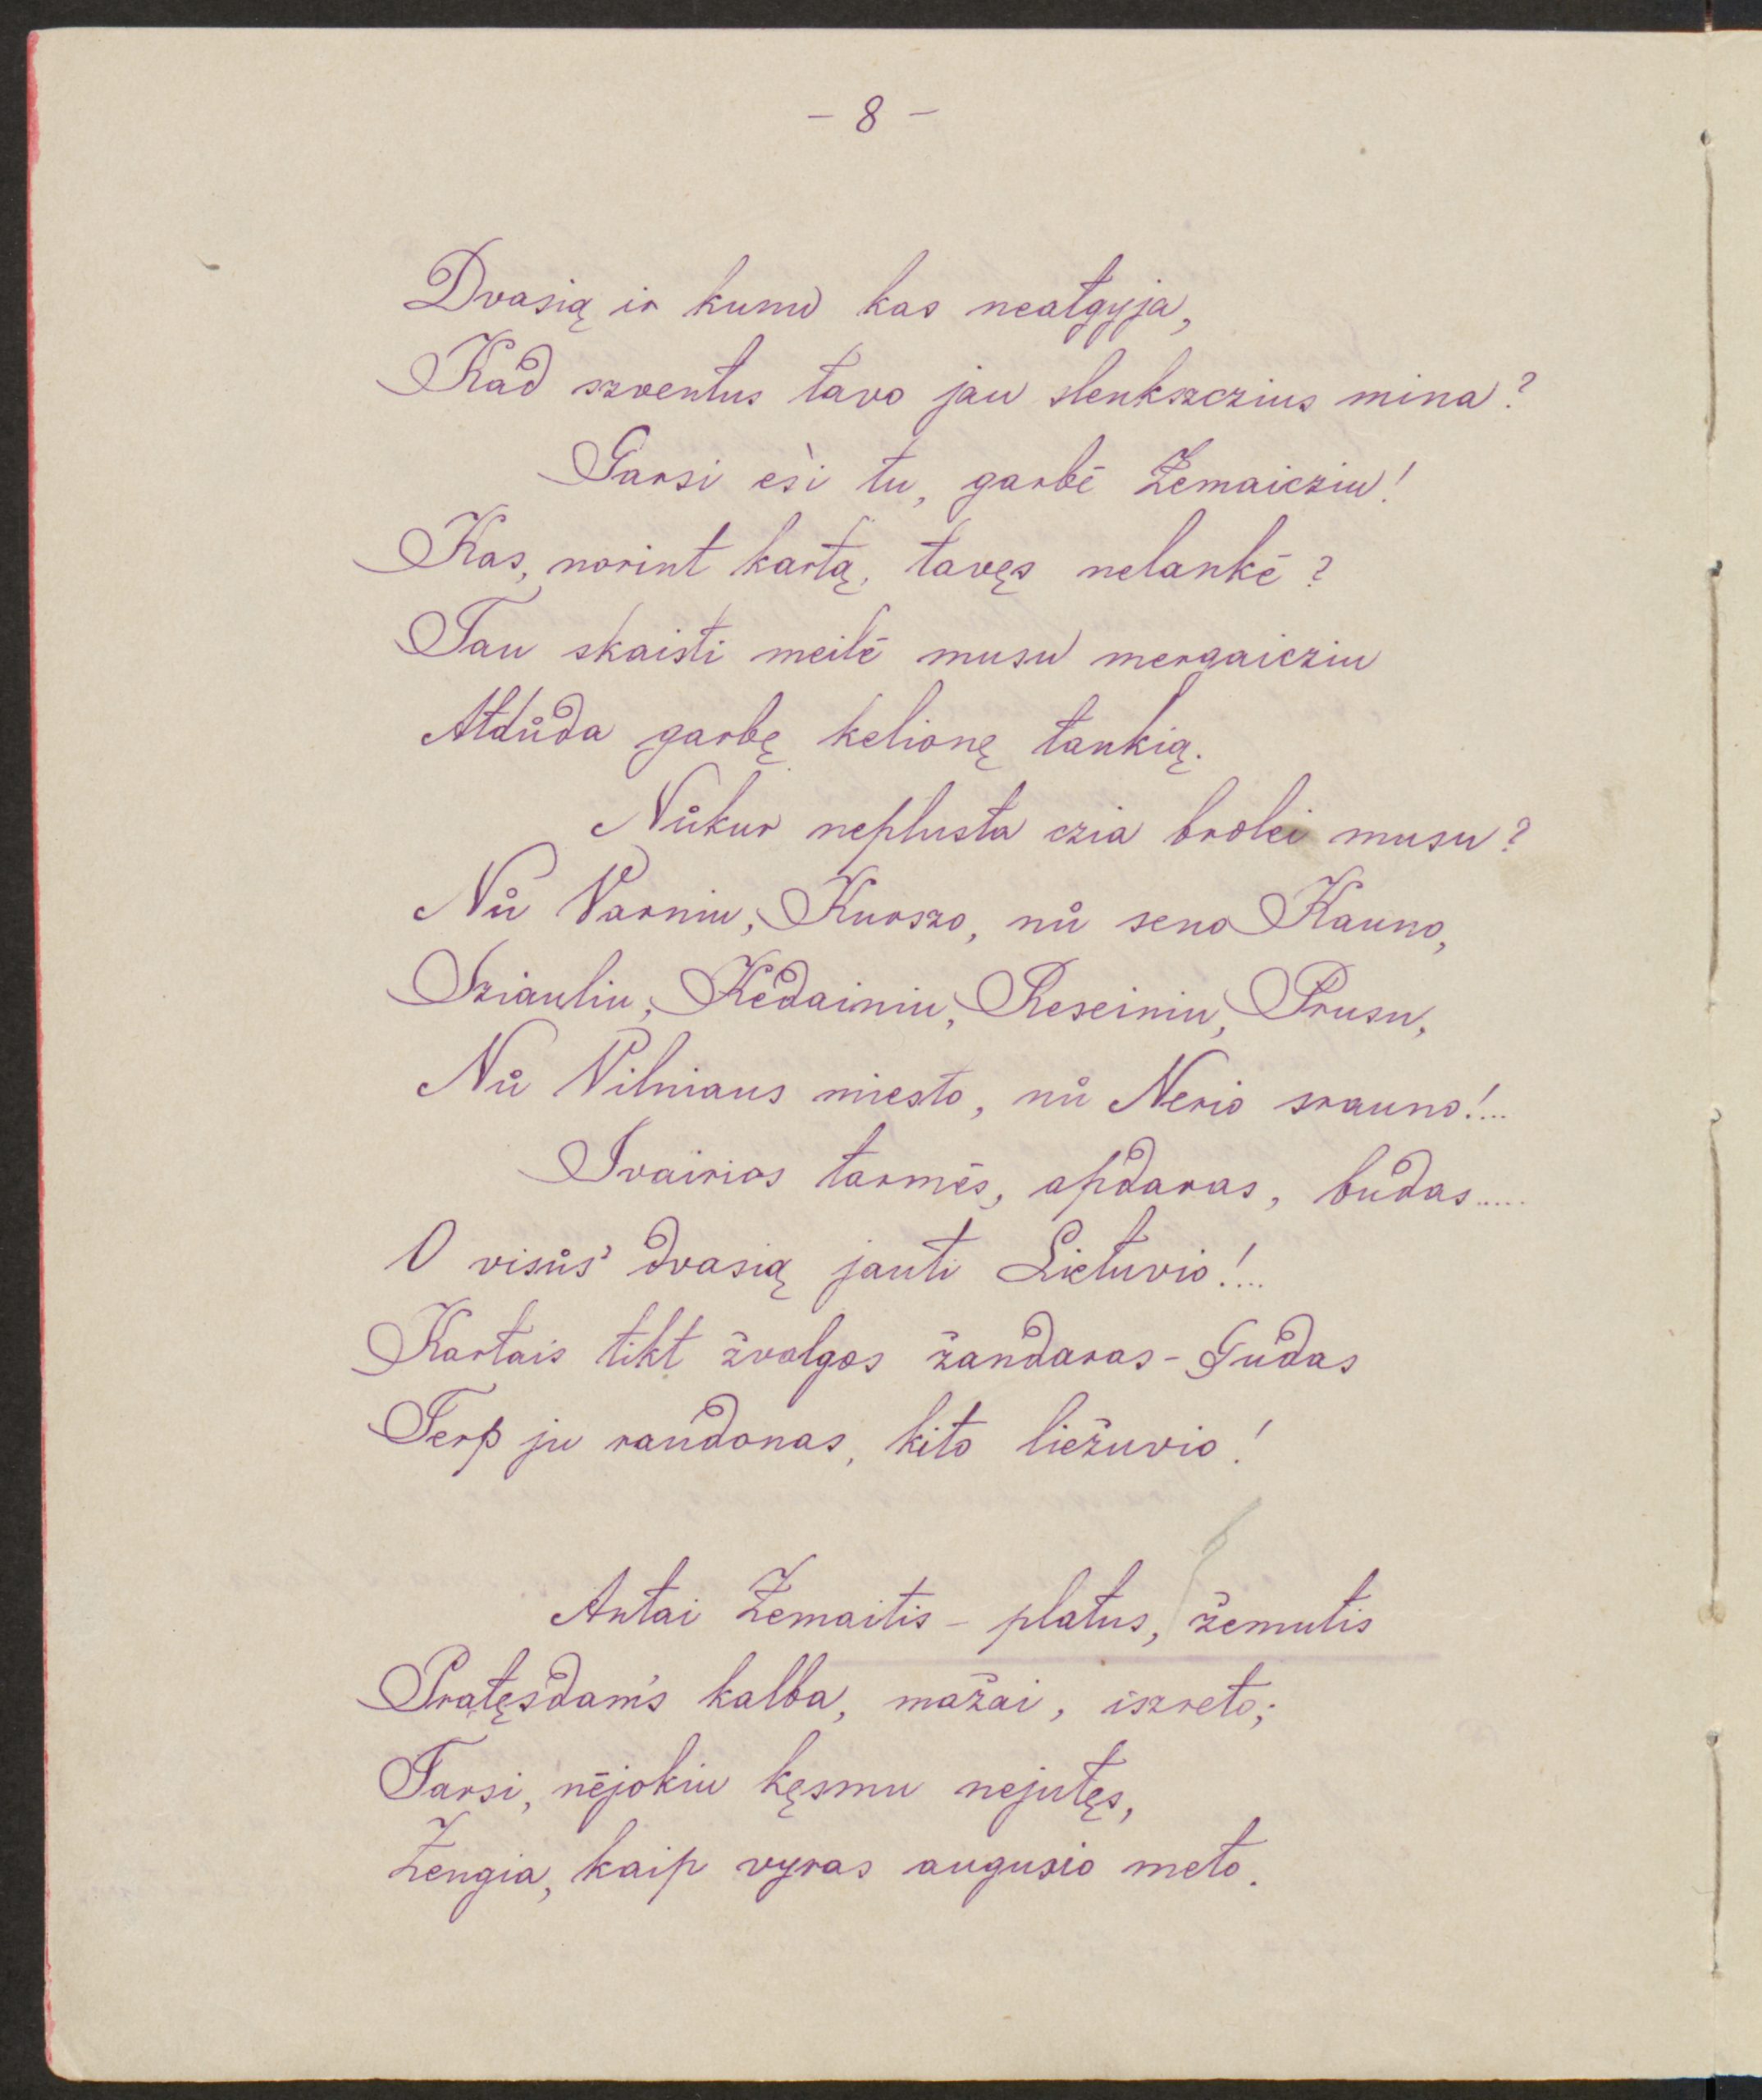 - 8 -
Dvasią ir kunu kas neatgyja,
Kad szventus tavo jau slenkszczius mina?
Garsi esì tu, garbė Žemaicziu!
Kas, norint kartą, tavęs nelankė?
Tau skaisti meilė musu mergaicziu
Atdůda garbę kelionę tankią.
Nůkur neplusta czia brolei musu?
Nů Varniu, Kurszo, nů seno Kauno,
Sziauliu, Kėdainiu, Reseiniu, Prusu,
Nů Vilniaus miesto, nů Nerio srauno!...
Ivairios tarmės, apdaras, budas.....
O visůs' dvasią jauti Lietuvio!...
Kartais tikt žvalgos žandaras - Gudas
Terp ju raudonas, kito liežuvio!
Antai Žemaitis - platus, žemutis
Pratęsdam's kalba, mažai, iszreto;
Tarsi, nėjokiu kęsmu nejutęs,
Žengia, kaip vyras augusio meto.